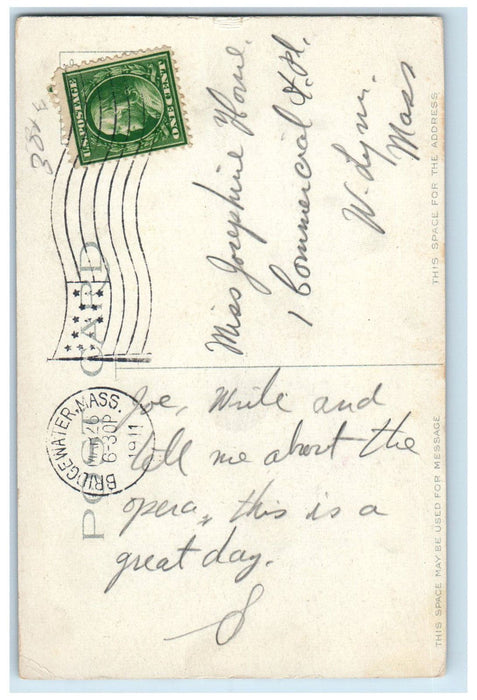 POST CARD
U.S. POSTAGE
ONE CENT
BRIDGEWATER, MASS.
26
6-30P
1911
Miss Josephine Howe.
1 Commercial St. Pl.
W. Lynn.
Mass
THIS SPACE FOR THE ADDRESS.
Joe, Write and
tell me about the
opera, this is a
great day.
THIS SPACE MAY BE USED FOR MESSAGE.